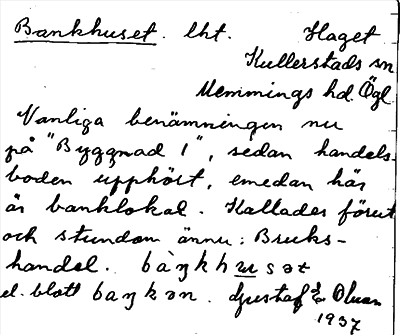 Bankhuset. lht. Haget
Kullerstads sn
Memmings hd. Ögl.
Vanliga benämningen nu
på "Byggnad 1", sedan handels-
boden upphört, emedan här
är banklokal. Kallades förut
och stundom ännu: Bruks-
handel. bàŋkhusət
el. blott baŋkən. Gustaf E:n Olsson
1937